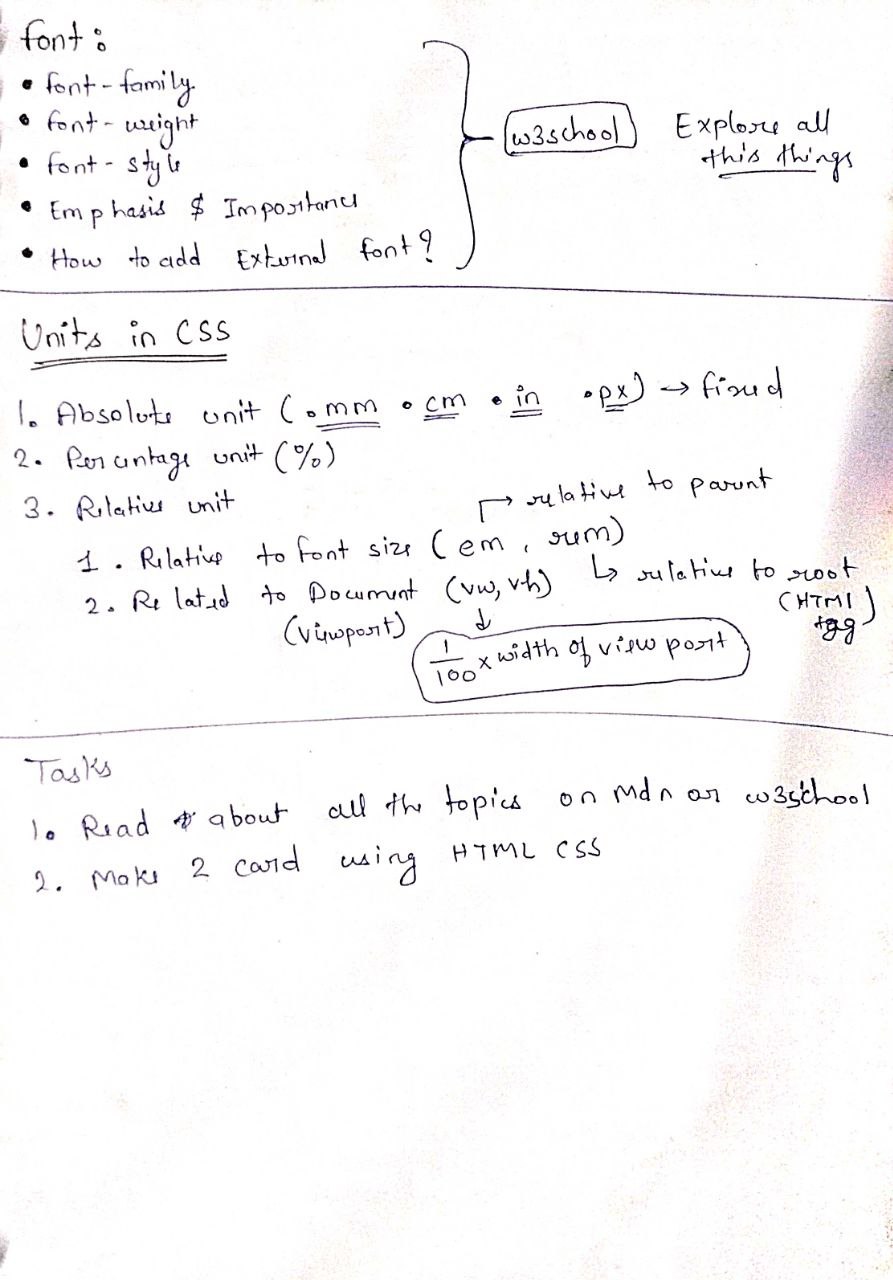 font :
• font-family
• font-weight
• font-style
• Emphasis & Importance
• How to add External font?
w3school
Explore all
this things
Units in CSS
1. Absolute unit (• mm • cm • in • px) → fixed
2. Percentage unit (%)
3. Relative unit
→ relative to parent
1. Relative to font size (em, rem)
↳ relative to root
(HTML
tag)
2. Related to Document (vw, vh)
(viewport)
↓
1/100 x width of view port
Tasks
1. Read about all the topics on mdn or w3school
2. Make 2 card using HTML CSS